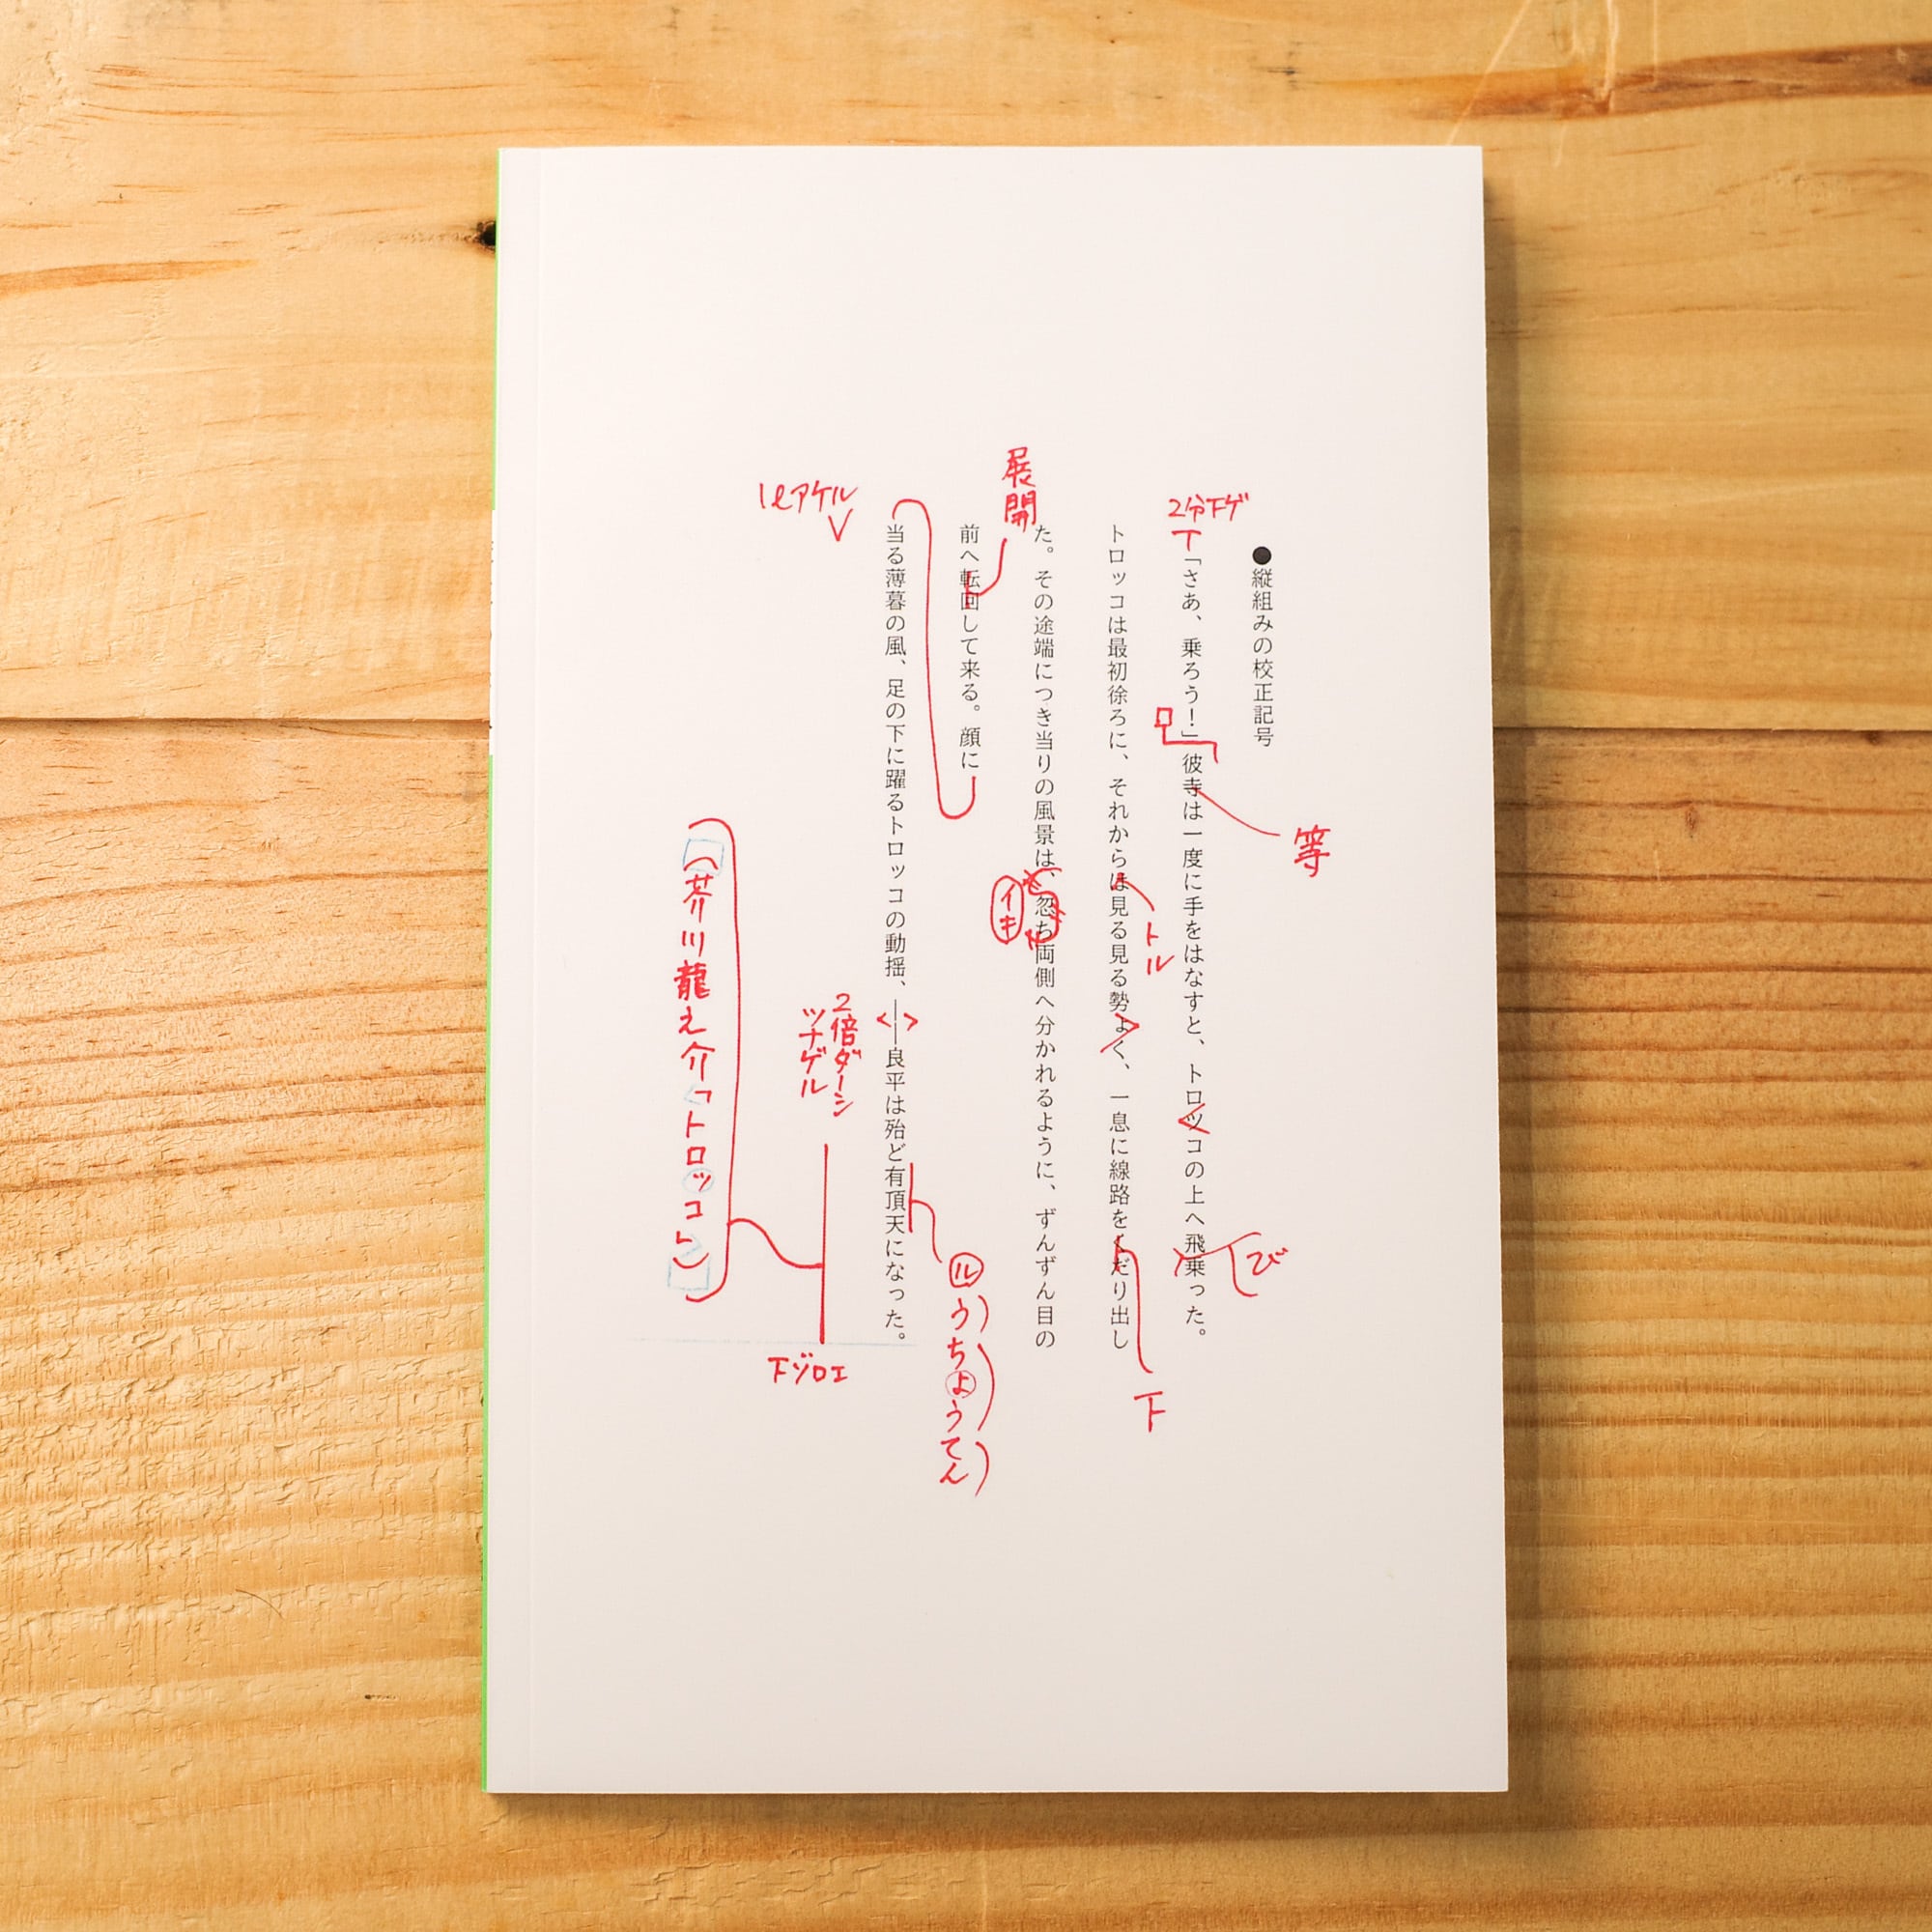 ●縦組みの校正記号
2分下ゲ
「さあ、乗ろう！」彼寺は一度に手をはなすと、トロツコの上へ飛乗った。
等
び
トロッコは最初徐ろに、それからは見る見る勢よく、一息に線路をくだり出し
トル
下
た。その途端につき当りの風景は、忽ち両側へ分かれるように、ずんずん目の
イキ
展開
前へ転回して来る。顔に
当る薄暮の風、足の下に躍るトロッコの動揺、――良平は殆ど有頂天になった。
ル
うちょうてん
1ℓアケル
2倍ダーシ
ツナゲル
下ゾロエ
（芥川龍之介「トロッコ」）